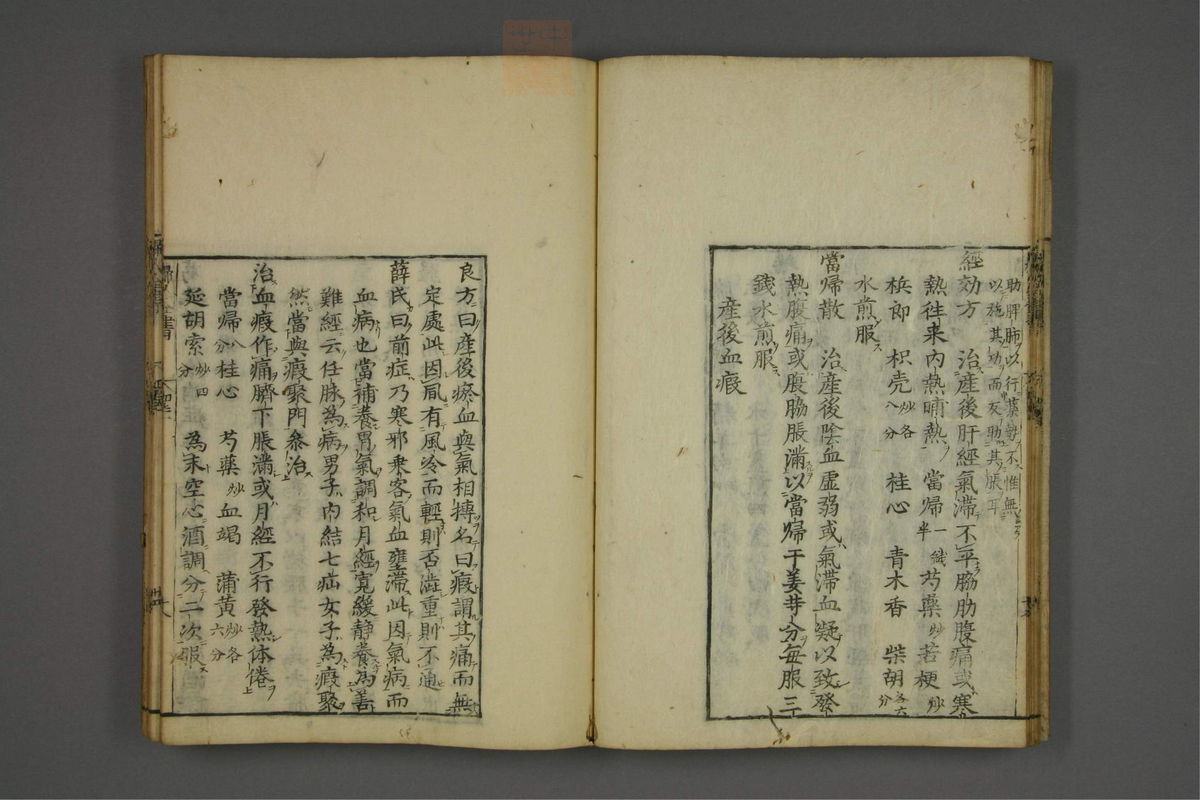 助脾肺以行藥勢不惟無
以施其功而反助其脹耳
經効方　治產後肝經氣滯不平脇肋腹痛或寒
熱往来内熱晡熱　當歸一錢半　芍藥炒　苦梗炒
梹郎　枳壳炒各八分　桂心　青木香　柴胡各六分
水煎服
當帰散　治產後陰血虚弱或氣滯血凝以致發
熱腹痛或腹脇脹滿以當帰干姜等分每服三
錢水煎服
產後血瘕
良方曰產後瘀血與氣相摶名曰瘕謂其痛而無
定處此因夙有風冷而輕則否澁重則不通
薛氏曰前症乃寒邪乗客氣血壅滯此因氣病而
血病也當補養胃氣調和月經寛緩静養為善
難經云任脉為病男子内結七疝女子為瘕聚
然當與瘕聚門叅治
治血瘕作痛臍下脹滿或月經不行發熱体倦
當帰八分　桂心　芍藥炒　血竭　蒲黄炒各六分
延胡索炒四分　為末空心酒調分二次服